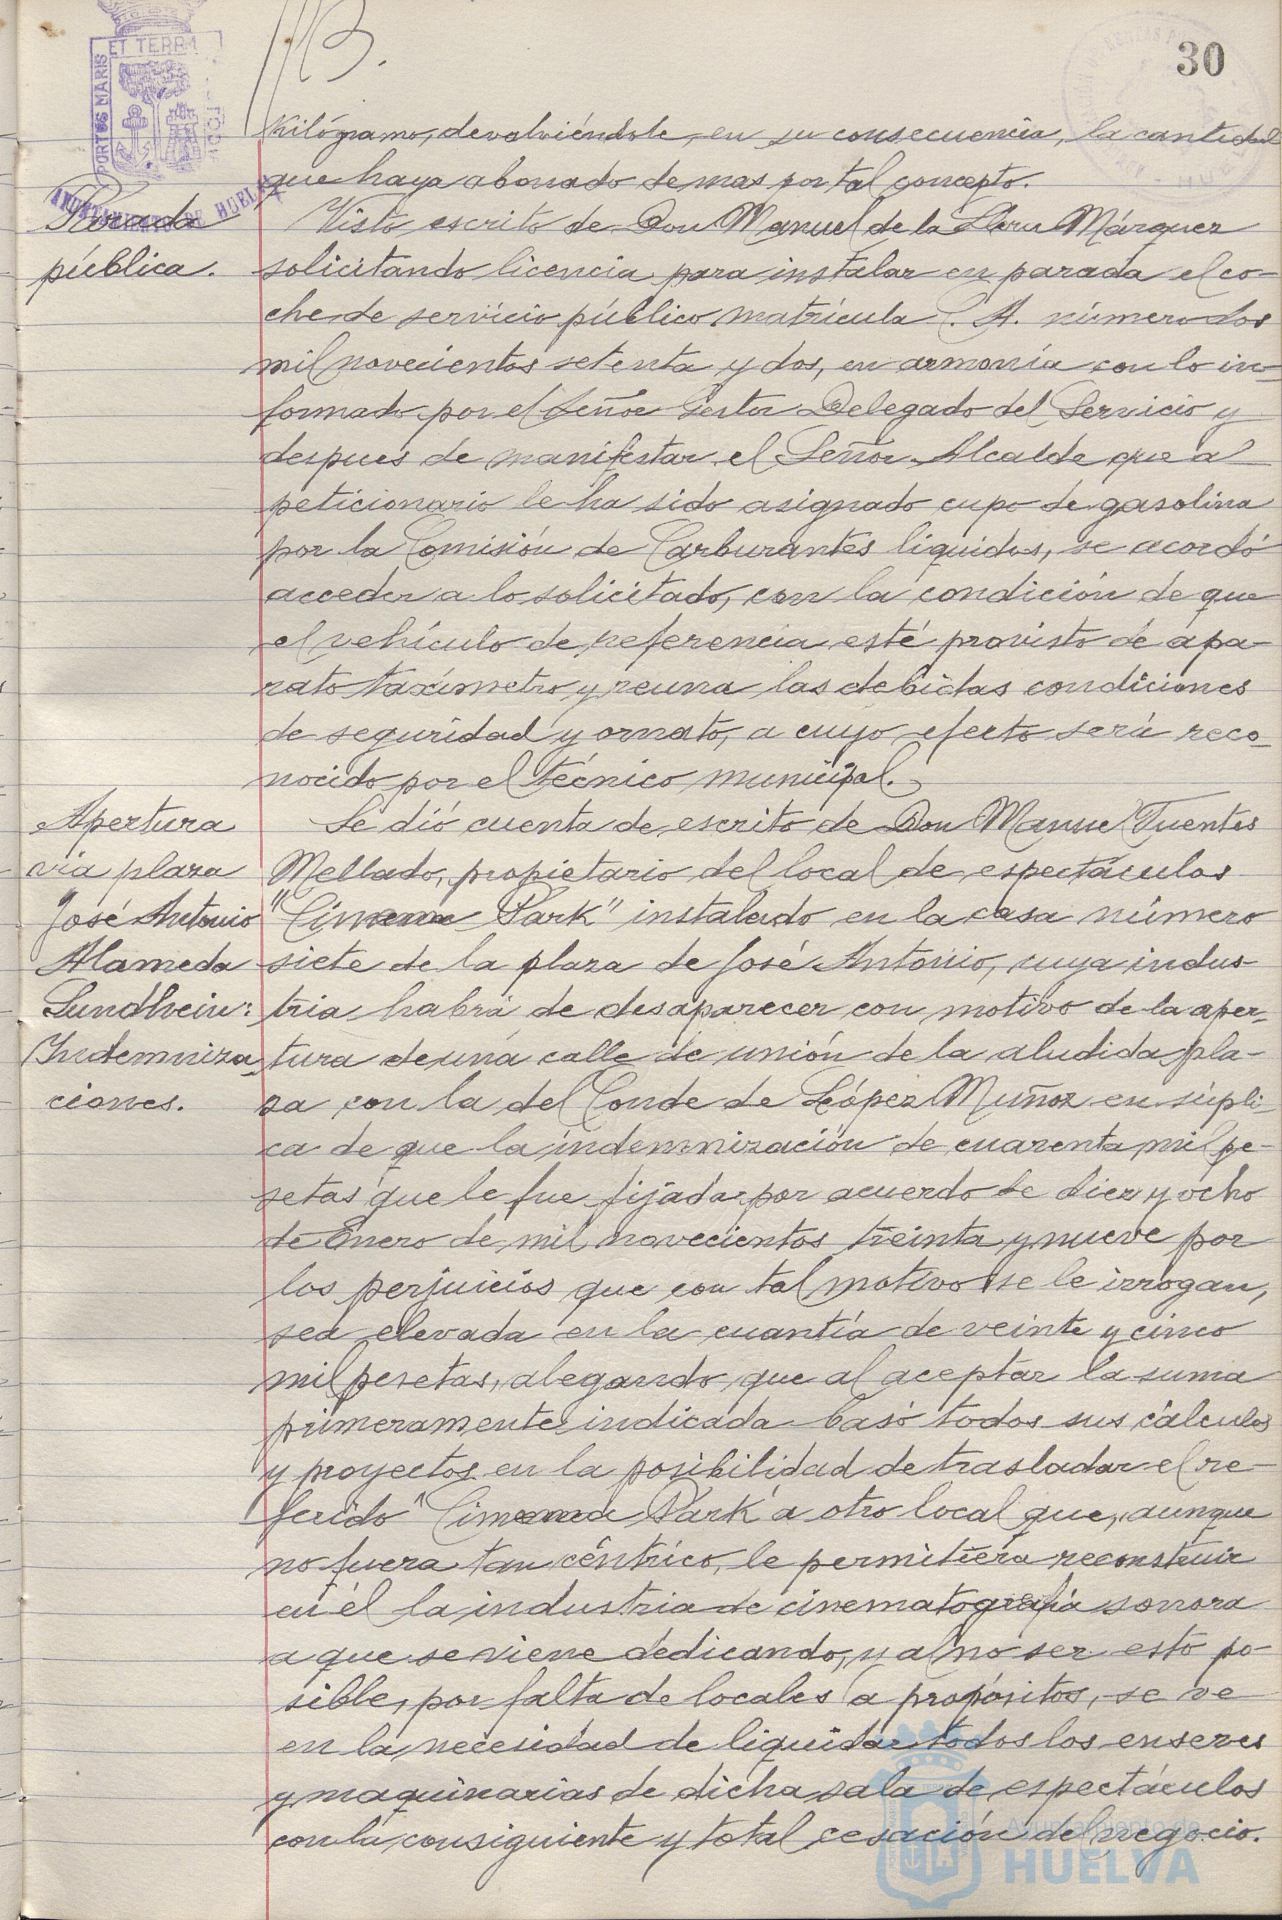 30
PORTUS MARIS
ET TERRA
AYUNTAMIENTO DE HUELVA
Kilógramo, devolviéndole, en su consecuencia, la cantidad
que haya abonado demas por tal concepto.
Parada
pública.
Visto escrito de Don Manuel de la Llera Márquez
solicitando licencia para instalar en parada el co-
che de servicio público matrícula C. A. número dos
mil novecientos setenta y dos, en armonía con lo in-
formado por el Señor Gestor Delegado del Servicio y
despues de manifestar el Señor Alcalde que al
peticionario le ha sido asignado cupo de gasolina
por la Comisión de Carburantes liquidos, se acordó
acceder a lo solicitado, con la condición de que
el vehículo de referencia esté provisto de apa-
rato taxímetro y reuna las debidas condiciones
de seguridad y ornato, a cuyo efecto será reco-
nocido por el técnico municipal.
Apertura
via plaza
"José Antonio
Alameda
Sundheim:
Indemniza-
ciones.
Se dió cuenta de escrito de Don Manuel Fuentes
Mellado, propietario del local de espectáculos
"Cinema Park" instalado en la casa número
siete de la plaza de José Antonio, cuya indus-
tria habrá de desaparecer con motivo de la aper-
tura de una calle de unión de la aludida pla-
za con la del Conde de López Muñoz en súpli-
ca de que la indemnización de cuarenta mil pe-
setas que le fue fijada por acuerdo de diez y ocho
de Enero de mil novecientos treinta y nueve por
los perjuicios que con tal motivo se le irrogan,
sea elevada en la cuantía de veinte y cinco
mil pesetas, alegando que al aceptar la suma
primeramente indicada basó todos sus cálculos
y proyectos en la posibilidad de trasladar el re-
ferido "Cinema Park" a otro local que, aunque
no fuera tan céntrico, le permitiera reconstruir
en él la industria de cinematografía sonora
a que se viene dedicando, y al no ser esto po-
sible, por falta de locales a propósitos, se ve
en la necesidad de liquidar todos los enseres
y maquinarias de dicha sala de espectáculos
con la consiguiente y total cesación del negocio.
Ayuntamiento de
HUELVA